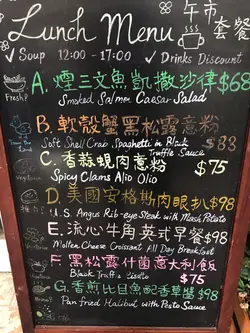 Lunch Menu 午市套餐
✓ Soup 12:00 - 17:00 ✓ Drinks Discount
Fresh?
A. 煙三文魚凱撒沙律 $68
Smoked Salmon Caesar Salad
B. 軟殼蟹黑松露意粉 $88
Soft Shell Crab Spaghetti in Black Truffle Sauce
C. 香蒜蜆肉意粉 $75
Spicy Clams Alio Olio
D. 美國安格斯肉眼扒 $98
U.S. Angus Rib-eye Steak with Mash Potato
E. 流心牛角英式早餐 $98
Molten Cheese Croissant All Day Breakfast
F. 黑松露什菌意大利飯 $75
Black Truffle Risotto
G. 香煎比目魚配香草醬 $98
Pan fried Halibut with Pesto Sauce